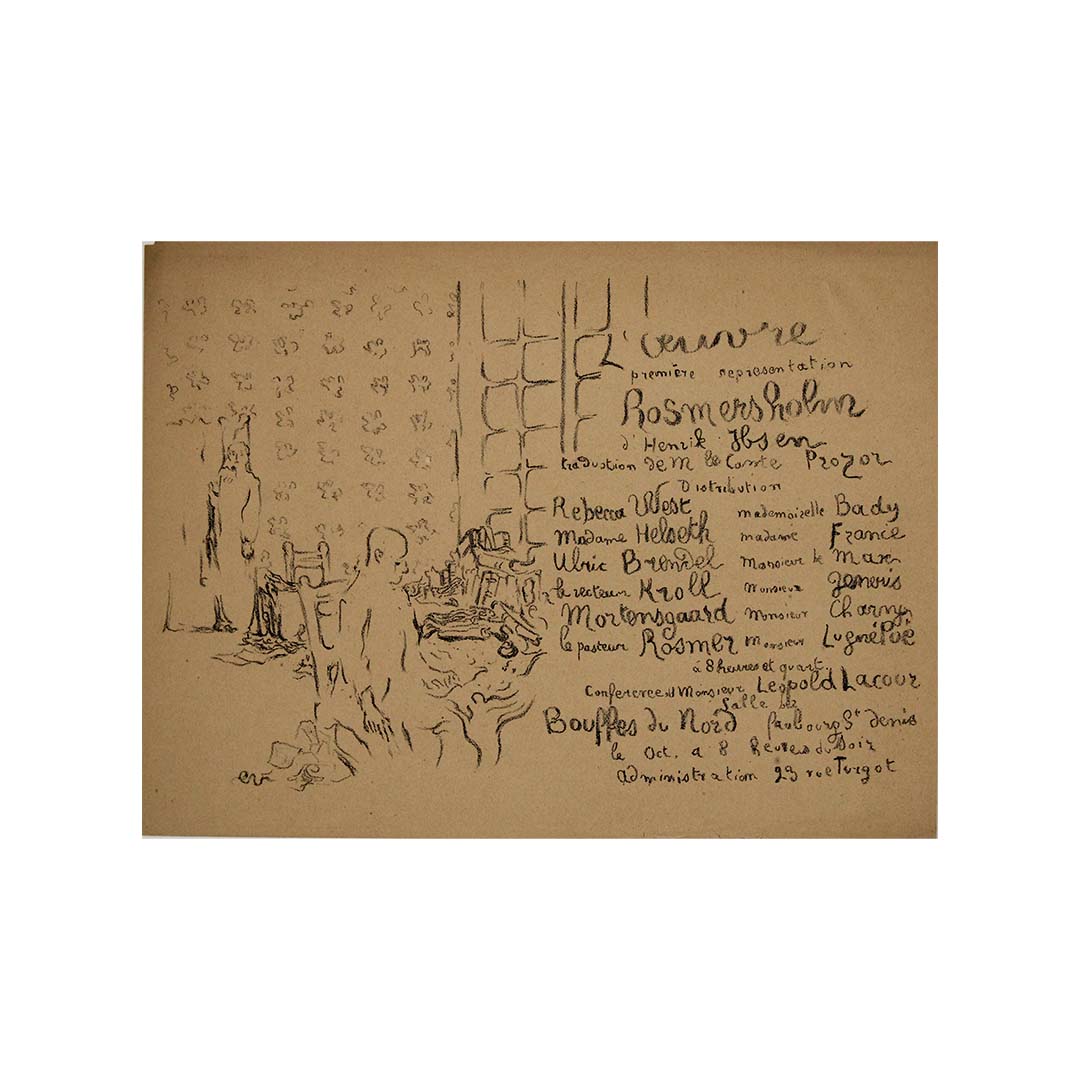 L'œuvre
première representation
Rosmersholm
d'Henrik Ibsen
traduction de M le Comte Prozor
Distribution
Rebecca West mademoiselle Bady
Madame Helseth madame France
Ulric Brendel Monsieur de Max
le recteur Kroll Monsieur
Mortensgaard Monsieur Charny
le pasteur Rosmer Monsieur LugnéPoë
à 8 heures et quart.
Conference d Monsieur Leopold Lacour
Salle des
Bouffes du Nord faubourg St denis
le Oct. a 8 heures du Soir
administration 23 rue Turgot
ev